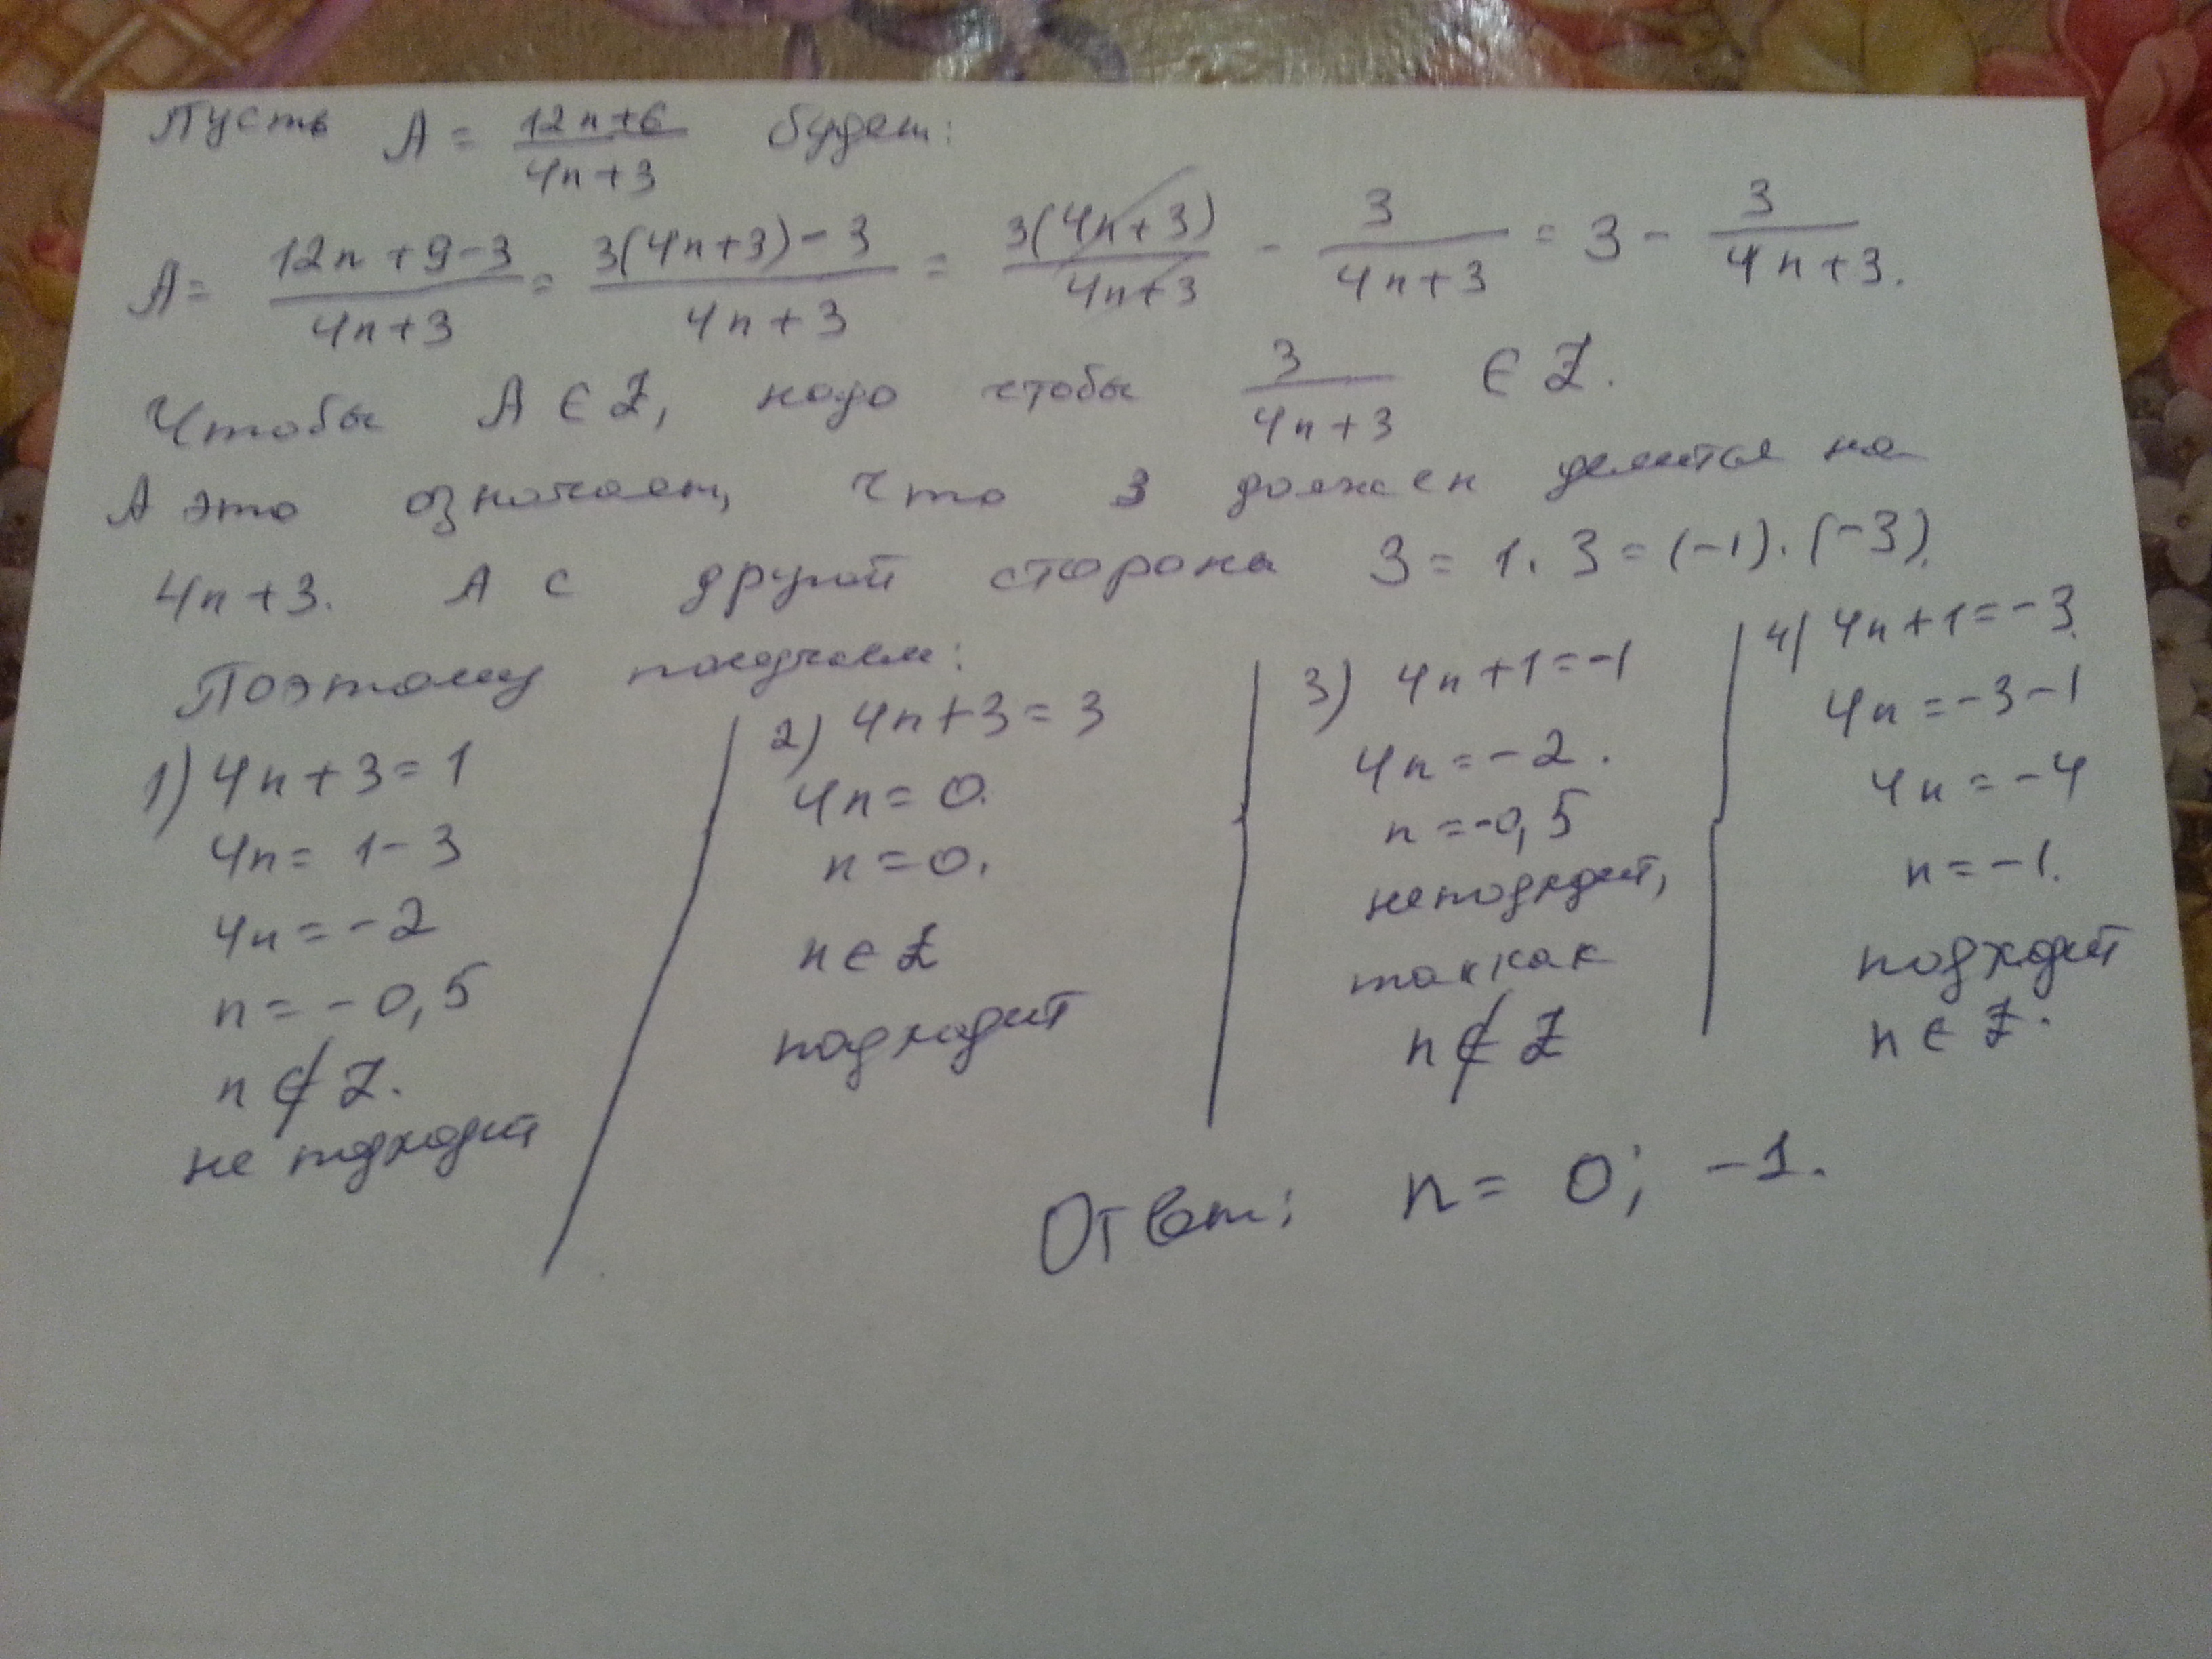 Пусть A = \frac{12n+6}{4n+3} будет:
A = \frac{12n+9-3}{4n+3} = \frac{3(4n+3)-3}{4n+3} = \frac{3(4n+3)}{4n+3} - \frac{3}{4n+3} = 3 - \frac{3}{4n+3}.
Чтобы A ∈ Z, надо чтобы \frac{3}{4n+3} ∈ Z.
А это означает, что 3 должен делится на
4n+3. А с другой стороны 3 = 1 · 3 = (-1) · (-3).
Поэтому получаем:
1) 4n+3=1
4n= 1-3
4n=-2
n=-0,5
n ∉ Z.
не подходит
2) 4n+3=3
4n=0.
n=0.
n ∈ Z
подходит
3) 4n+1=-1
4n=-2.
n=-0,5
неподходит,
таккак
n ∉ Z
4) 4n+1=-3.
4n=-3-1
4n=-4
n=-1.
подходит
n ∈ Z.
Ответ: n= 0; -1.